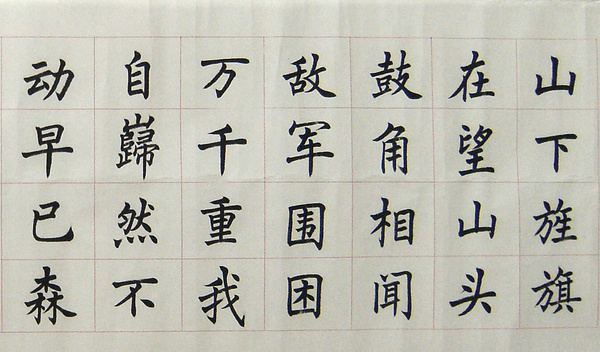 山下旌旗
在望山头
鼓角相闻
敌军围困
万千重我
自巋然不
动早已森